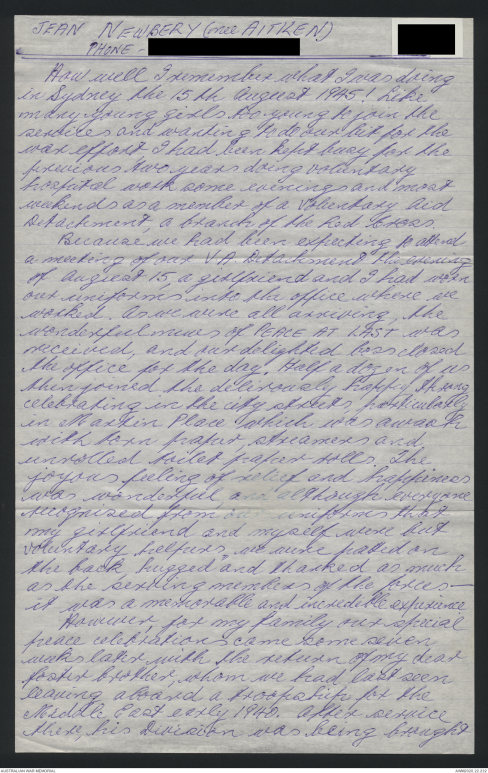 JEAN NEWBERY (nee AITKEN)
PHONE -
How well I remember what I was doing
in Sydney the 15th August 1945! Like
many young girls too young to join the
services and wanting to do our bit for the
war effort I had been kept busy for the
previous two years doing voluntary
hospital work some evenings and most
weekends as a member of a Voluntary Aid
Detachment, a branch of the Red Cross.
Because we had been expecting to attend
a meeting of our V.A. Detachment the evening
of August 15, a girlfriend and I had worn
our uniforms into the office where we
worked. As we were all arriving, the
wonderful news of PEACE AT LAST was
received, and our delighted boss closed
the office for the day. Half a dozen of us
then joined the deliriously happy throng
celebrating in the city streets, particularly
in Martin Place which was awash
with torn paper, streamers and
unrolled toilet paper rolls. The
joyous feeling of relief and happiness
was wonderful and although everyone
recognised from our uniforms that
my girlfriend and myself were but
voluntary helpers, we were patted on
the back, hugged and thanked as much
as the serving members of the forces —
it was a memorable and incredible experience
However for my family our special
peace celebrations came some seven
weeks later with the return of my dear
foster brother, whom we had last seen
leaving aboard a troopship for the
Middle East early 1940. After service
there, his Division was being brought
AUSTRALIAN WAR MEMORIAL